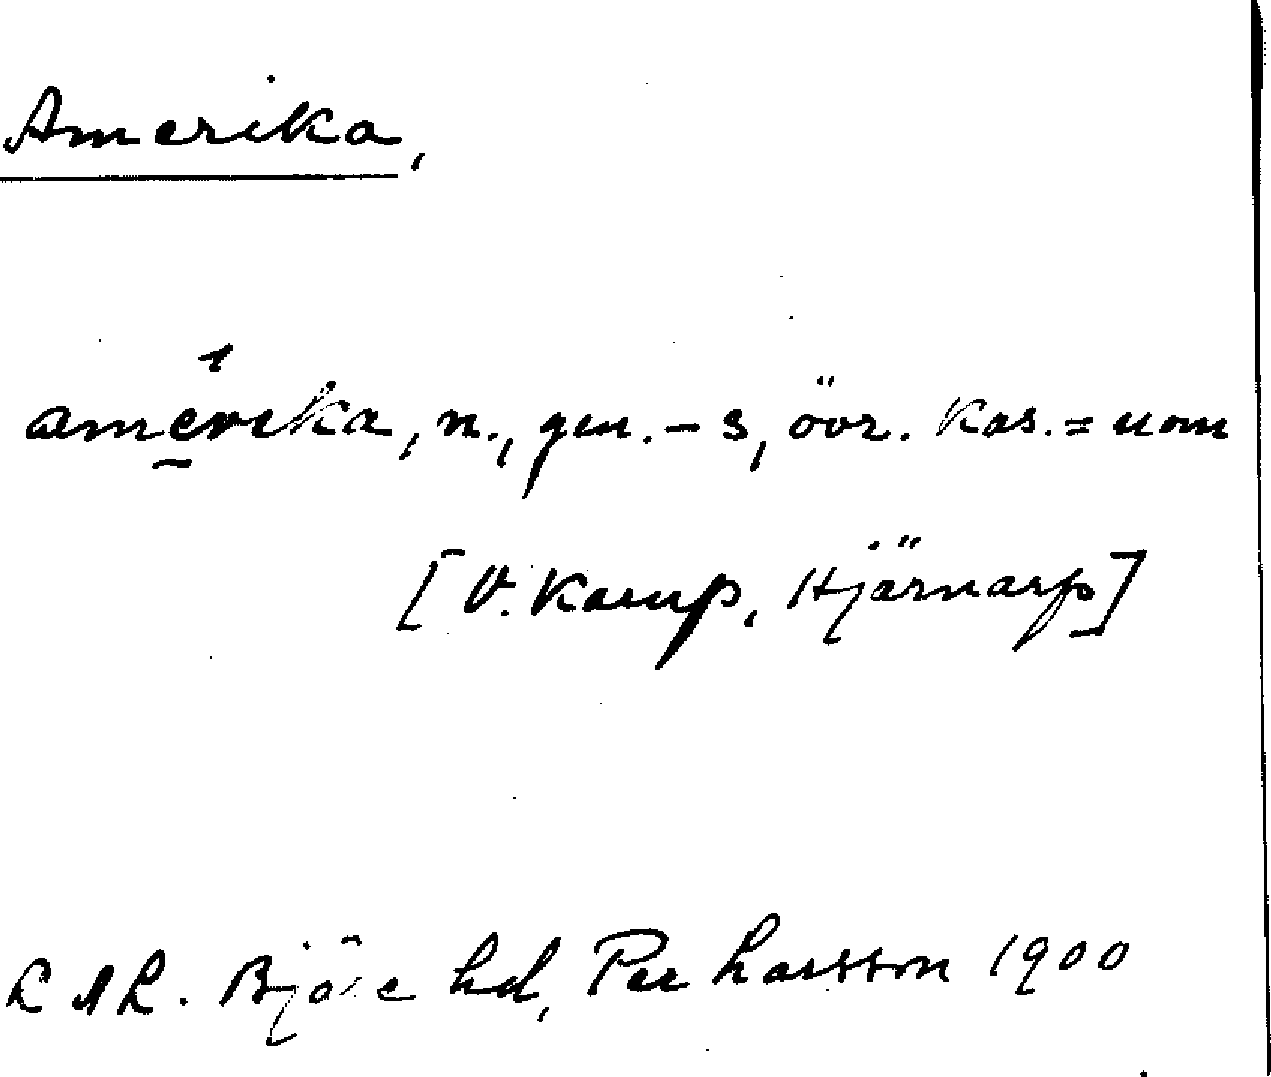 Amerika,
amērika, n., gen. -s, övr. kas. = nom
[V. Karup, Hjärnarp]
LAL. Bjäre hd, Per Larsson 1900